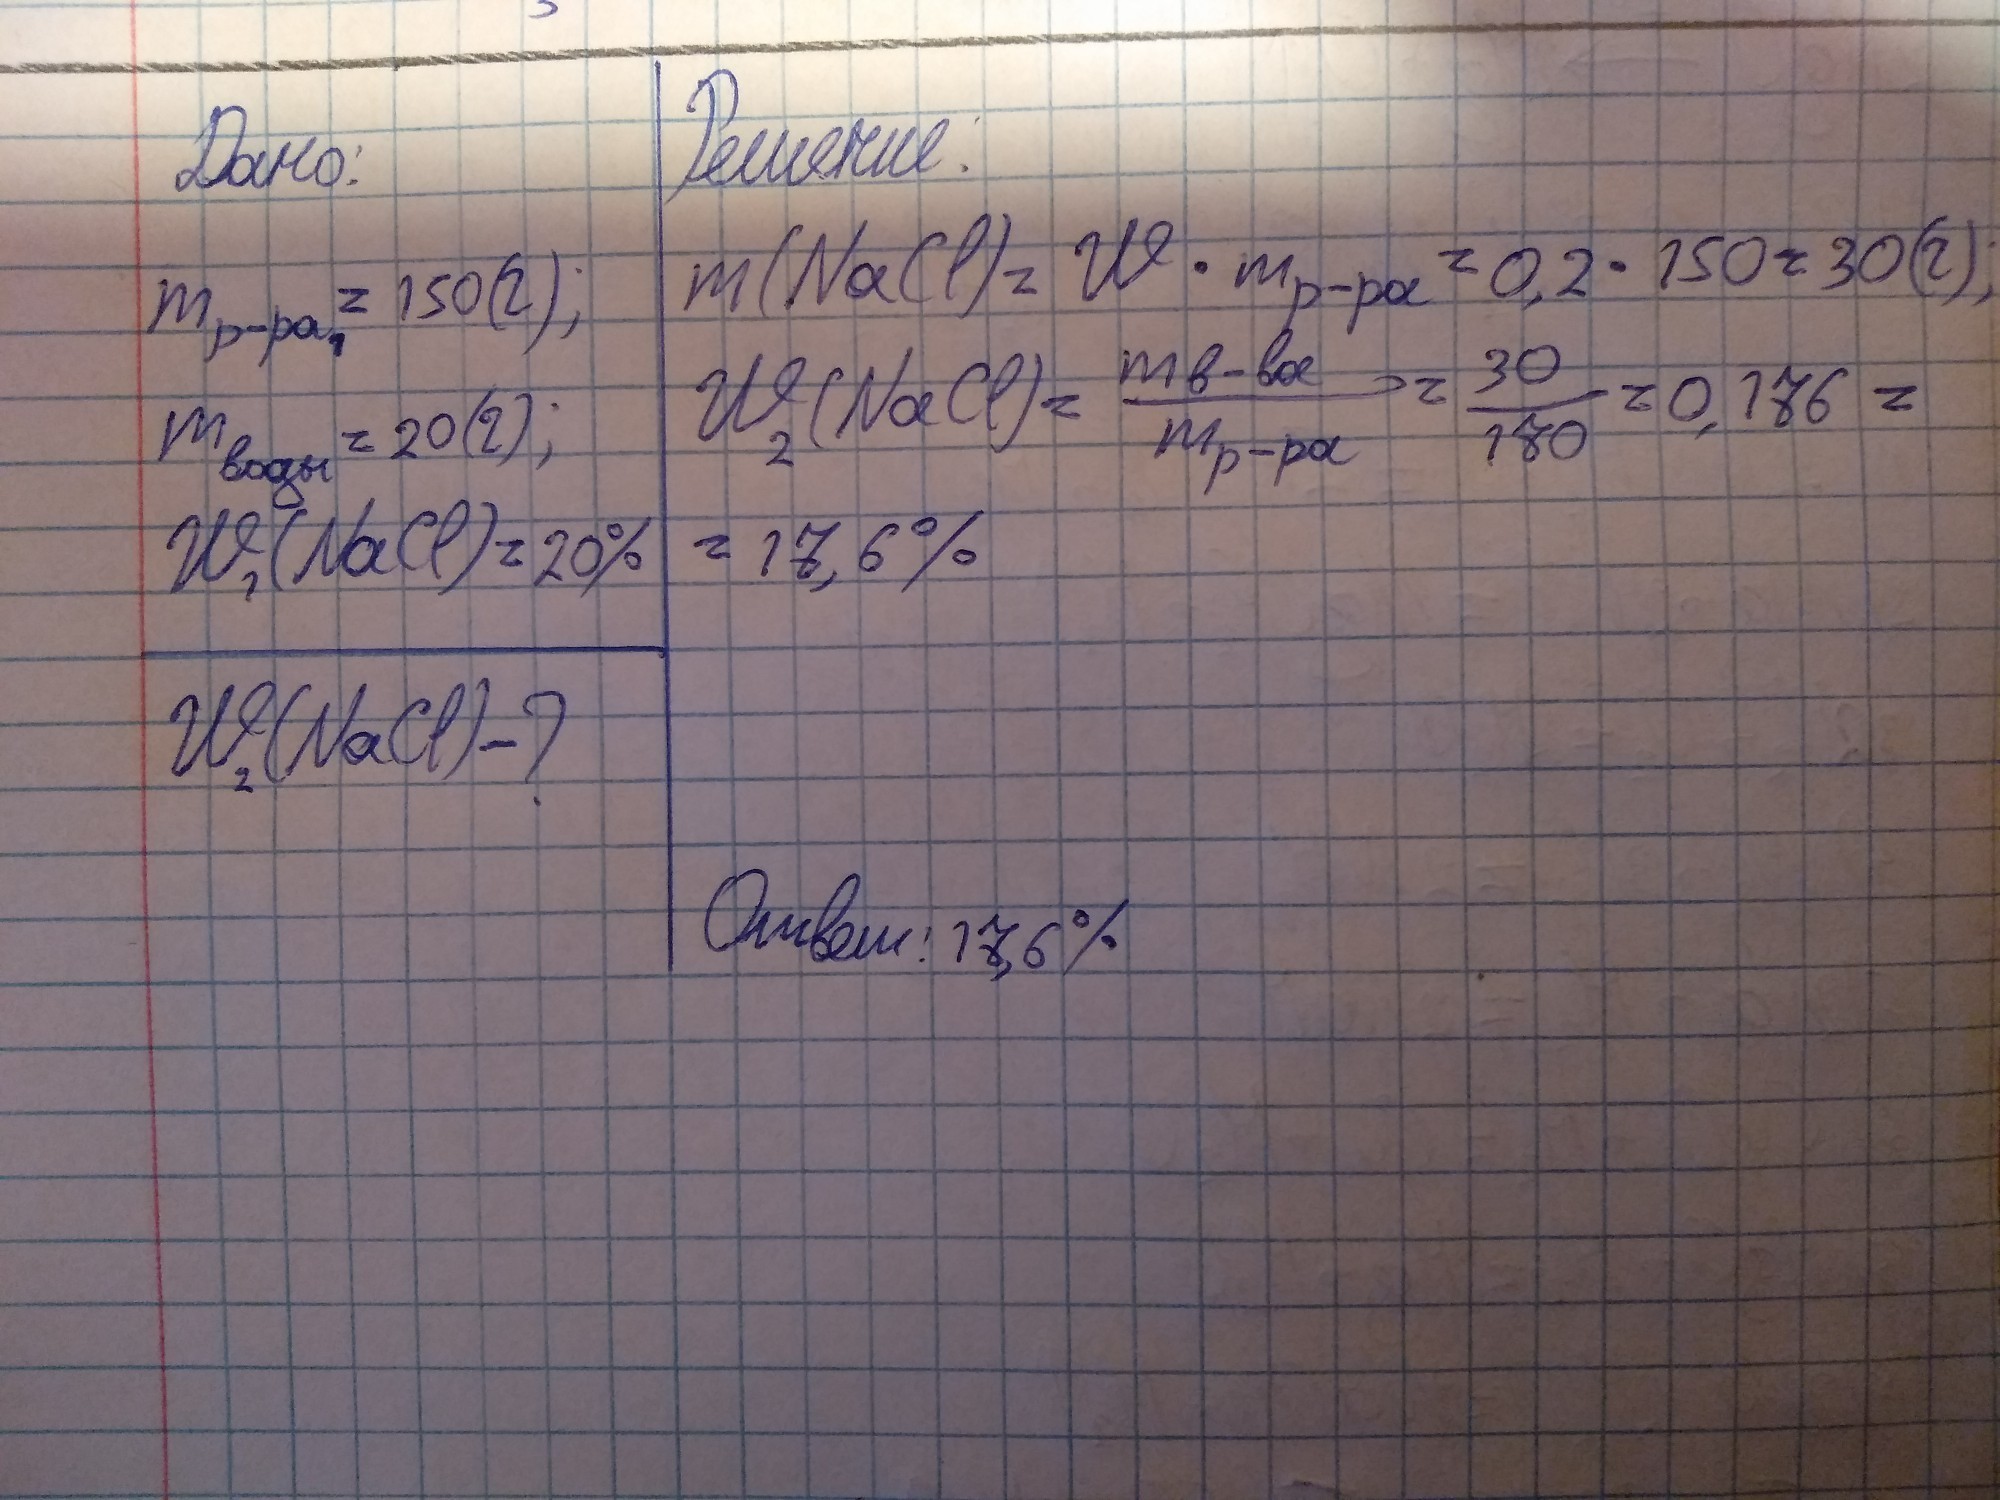 Дано:
mр-ра₁ = 150(г);
mводы = 20(г);
W₁(NaCl) = 20%
W₂(NaCl) - ?
Решение:
m(NaCl) = W · mр-ра = 0,2 · 150 = 30(г);
W₂(NaCl) = mв-ва / mр-ра = 30 / 170 = 0,176 =
= 17,6%
Ответ: 17,6%